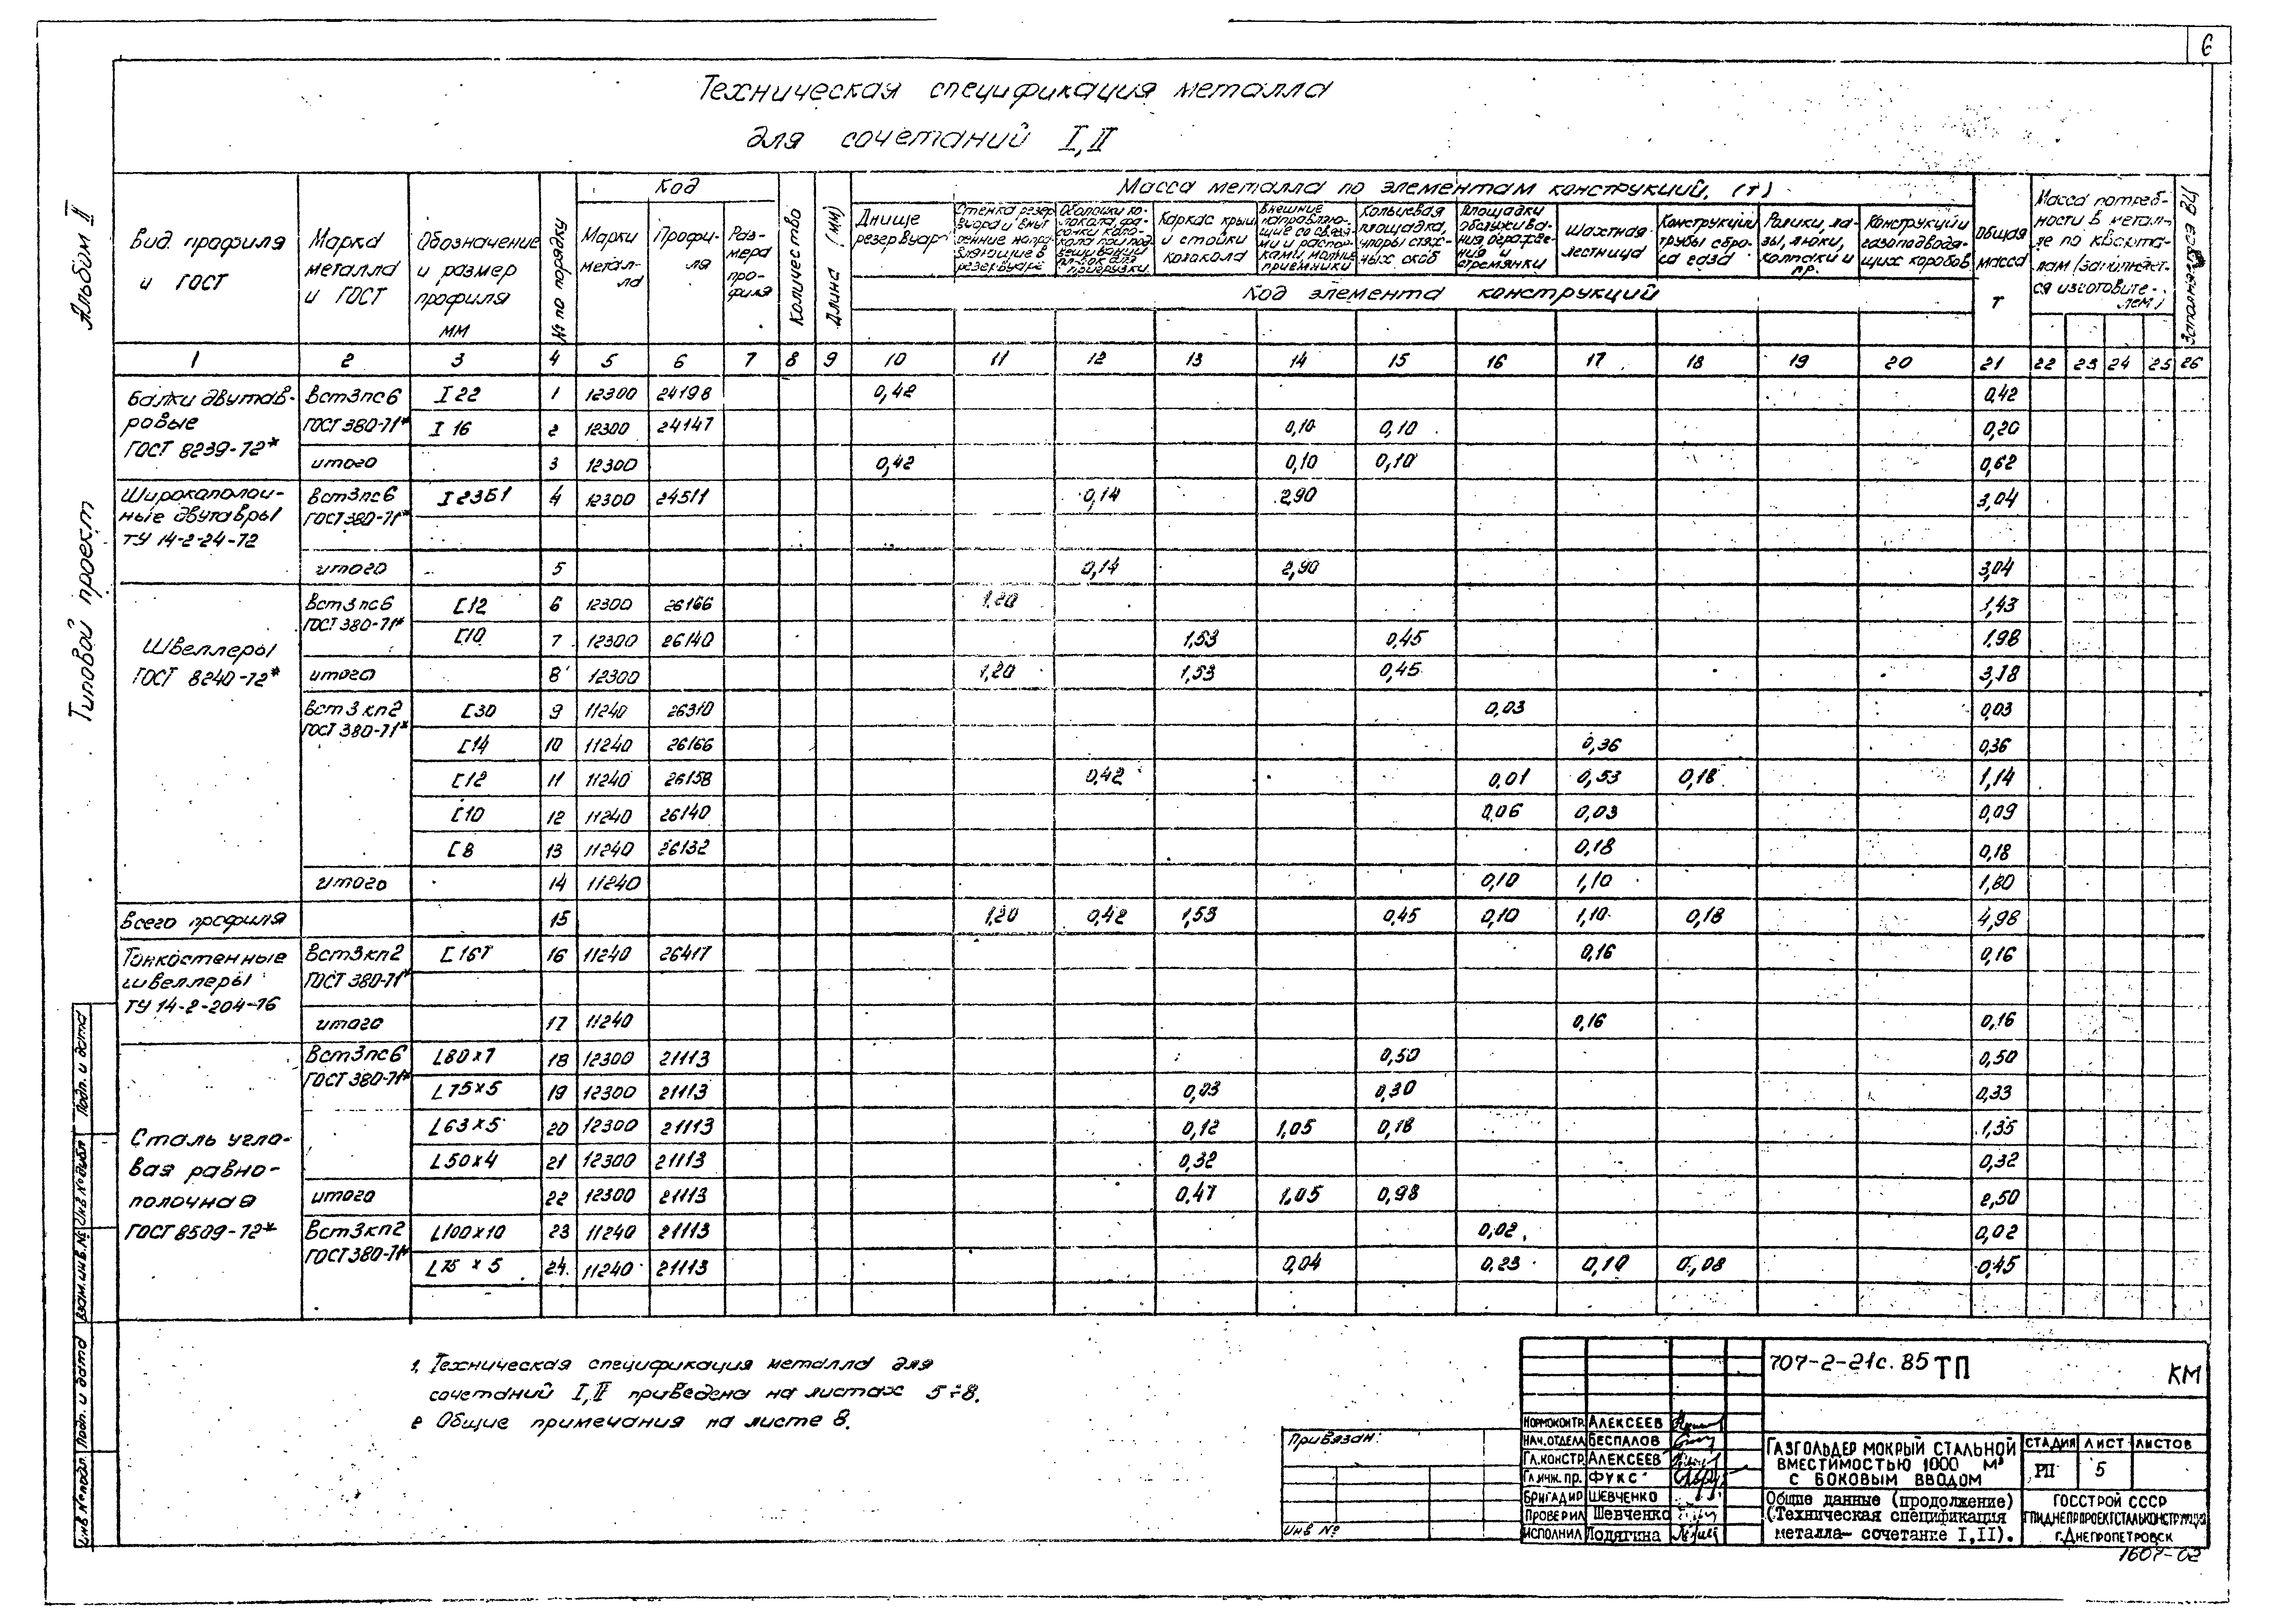 6
Техническая спецификация металла
для сочетаний I, II
Альбом II
Типовой проект
Вид профиля и ГОСТ
Марка металла и ГОСТ
Обозначение и размер профиля мм
№ по порядку
Код
Марки металла
Профиля
Размера профиля
Количество
Длина (мм)
Масса металла по элементам конструкций, (т)
Днище резервуар
Стенка резервуара и внутренние направляющие в резервуаре
Оболочки колокола, фасонки
Каркас крыши и стойки колокола
Внешние направляющие со связями и распорками, молниеприемники
Кольцевая площадка, упоры стяжных скоб
Площадки обслуживания, ограждения и стремянки
Шахтная лестница
Конструкции трубы сброса газа
Ролики, лазы, люки, колпаки и пр.
Конструкции газоподводящих коробов
Код элемента конструкций
Общая масса т
Масса потребности в металле по кварталам (заполняется изготовителем)
Заполняется ВЦ
1 2 3 4 5 6 7 8 9 10 11 12 13 14 15 16 17 18 19 20 21 22 23 24 25 26
Балки двутавровые ГОСТ 8239-72*
Вст3пс6 ГОСТ 380-71*
I 22 1 12300 24198 0,42 0,42
I 16 2 12300 24147 0,10 0,10 0,20
итого 3 12300 0,42 0,10 0,10 0,62
Широкополочные двутавры ТУ 14-2-24-72
Вст3пс6 ГОСТ 380-71*
I 23Б1 4 12300 24511 0,14 2,90 3,04
итого 5 0,14 2,90 3,04
Швеллеры ГОСТ 8240-72*
Вст3пс6 ГОСТ 380-71*
[12 6 12300 26166 1,20 1,43
[10 7 12300 26140 1,53 0,45 1,98
итого 8 12300 1,20 1,53 0,45 3,18
Вст3кп2 ГОСТ 380-71*
[30 9 11240 26310 0,03 0,03
[14 10 11240 26166 0,36 0,36
[12 11 11240 26158 0,42 0,01 0,53 0,18 1,14
[10 12 11240 26140 0,06 0,03 0,09
[8 13 11240 26132 0,18 0,18
итого 14 11240 0,10 1,10 1,80
Всего профиля 15 1,20 0,42 1,53 0,45 0,10 1,10 0,18 4,98
Тонкостенные швеллеры ТУ 14-2-204-76
Вст3кп2 ГОСТ 380-71*
[16Т 16 11240 26417 0,16 0,16
итого 17 11240 0,16 0,16
Сталь угловая равнополочная ГОСТ 8509-72*
Вст3пс6 ГОСТ 380-71*
L80x7 18 12300 21113 0,50 0,50
L75x5 19 12300 21113 0,03 0,30 0,33
L63x5 20 12300 21113 0,12 1,05 0,18 1,35
L50x4 21 12300 21113 0,32 0,32
итого 22 12300 21113 0,47 1,05 0,98 2,50
Вст3кп2 ГОСТ 380-71*
L100x10 23 11240 21113 0,02 0,02
L75 x 5 24 11240 21113 0,04 0,23 0,10 0,08 0,45
1. Техническая спецификация металла для
сочетаний I, II приведена на листах 5÷8.
2 Общие примечания на листе 8.
Инв № подл. Подп. и дата Взам.инв.№ Инв № дубл Подп. и дата
Привязан:
Инв №
707-2-21с.85 ТП КМ
Нормоконтр. Алексеев
Нач.отдела Беспалов
Гл.констр. Алексеев
Гл.инж.пр. Фукс
Бригадир Шевченко
Проверил Шевченко
Исполнил Лодягина
Газгольдер мокрый стальной
вместимостью 1000 м³
с боковым вводом
Стадия Лист Листов
РП 5
Общие данные (продолжение)
(Техническая спецификация
металла- сочетание I,II).
ГОССТРОЙ СССР
ГПИДНЕПРПРОЕКТСТАЛЬКОНСТРУКЦИЯ
г.Днепропетровск
1607-02